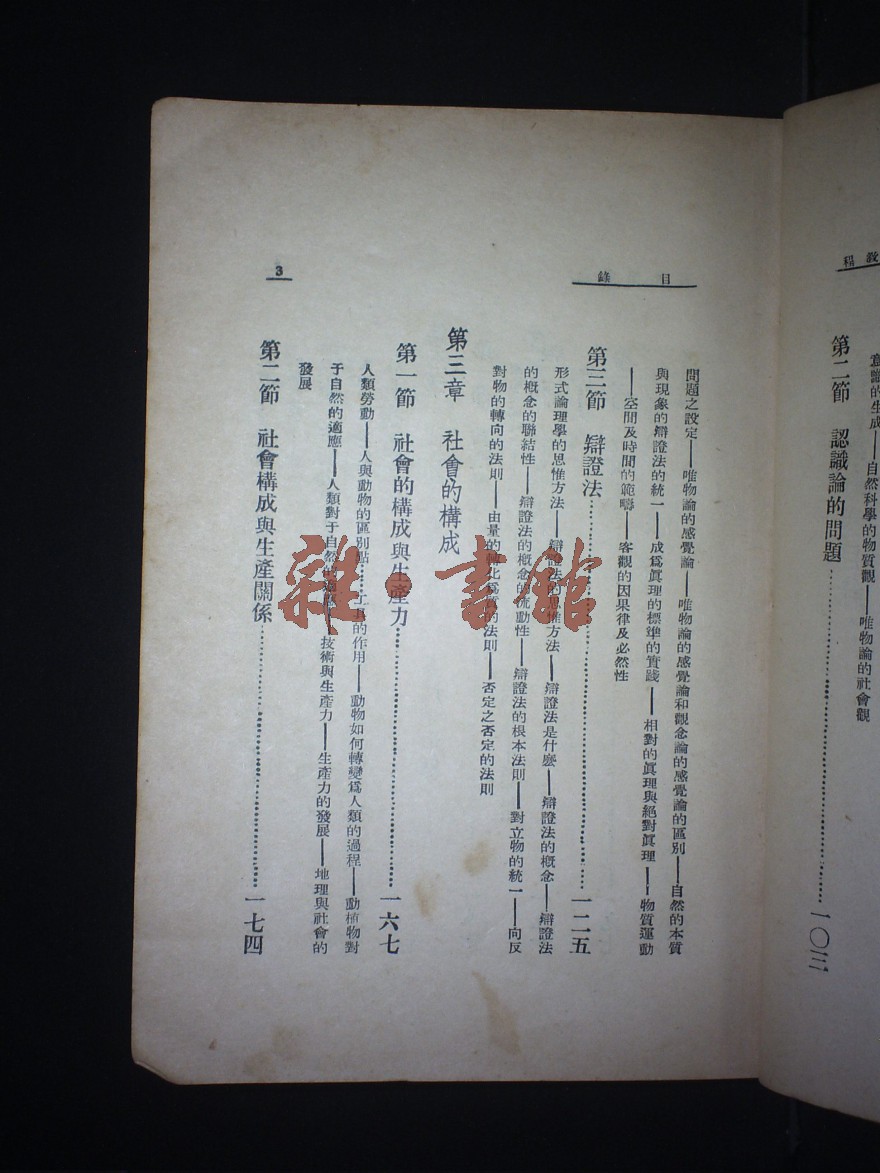 敎程
意識的生成——自然科學的物質觀——唯物論的社會觀
第二節　認識論的問題…………一〇三
目錄
3
問題之設定——唯物論的感覺論——唯物論的感覺論和觀念論的感覺論的區別——自然的本質
與現象的辯證法的統一——成爲眞理的標準的實踐——相對的眞理與絕對眞理——物質運動
——空間及時間的範疇——客觀的因果律及必然性
第三節　辯證法…………一二五
形式論理學的思惟方法——辯證法的思惟方法——辯證法是什麽——辯證法的概念——辯證法
的概念的聯結性——辯證法的概念的流動性——辯證法的根本法則——對立物的統一——向反
對物的轉向的法則——由量的轉化爲質的法則——否定之否定的法則
第三章　社會的構成
第一節　社會的構成與生產力…………一六七
人類勞動——人與動物的區別點……工具的作用——動物如何轉變爲人類的過程——動植物對
于自然的適應——人類對于自然的適應——技術與生產力——生產力的發展——地理與社會的
發展
第二節　社會構成與生產關係…………一七四
雜·書館